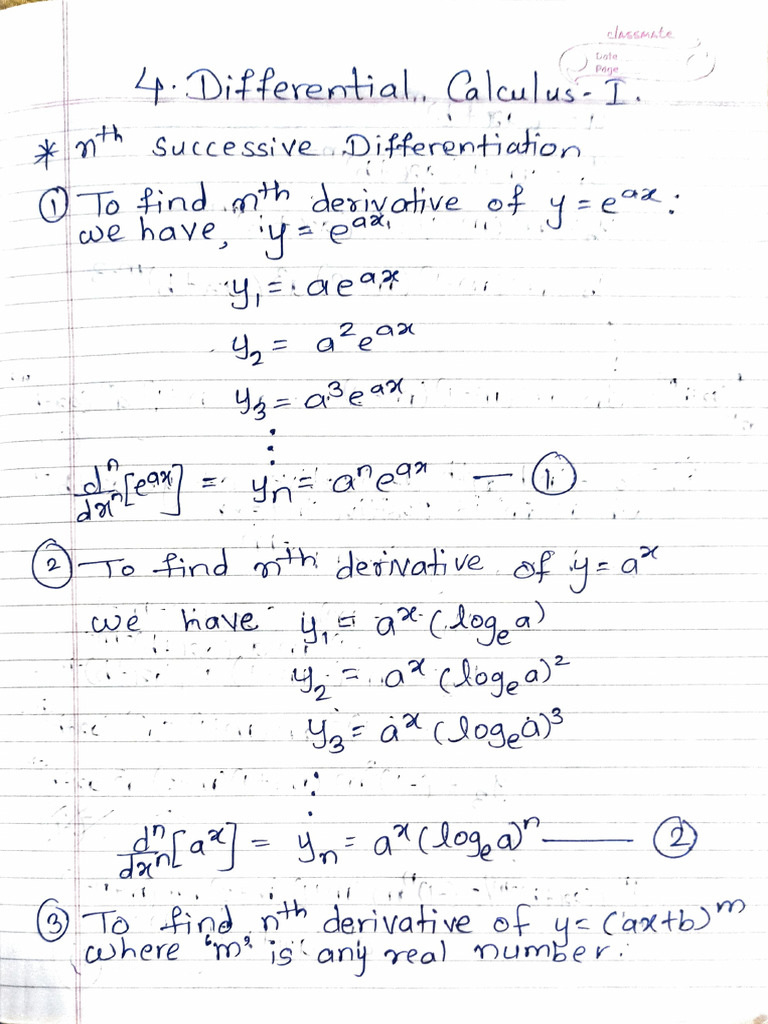 classmate
Date
Page
4. Differential Calculus - I.
* nth successive Differentiation
① To find nth derivative of y = e^ax :
we have, y = e^ax
y₁ = ae^ax
y₂ = a²e^ax
y₃ = a³e^ax
⋮
dⁿ/dxⁿ [e^ax] = yₙ = aⁿe^ax — ①
② To find nth derivative of y = a^x
we have y₁ = a^x (logₑa)
y₂ = a^x (logₑa)²
y₃ = a^x (logₑa)³
⋮
dⁿ/dxⁿ [a^x] = yₙ = a^x (logₑa)ⁿ — ②
③ To find nth derivative of y = (ax+b)^m
where 'm' is any real number.